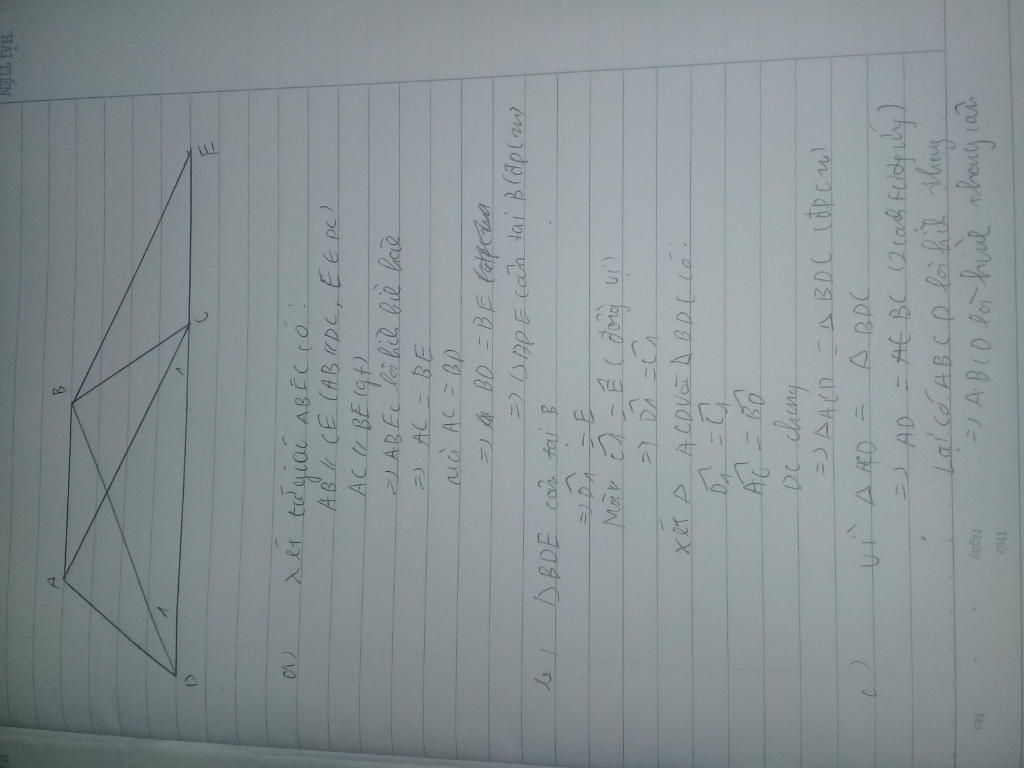 A
B
D
1
1
C
E
a) xét tứ giác ABEC có:
AB // CE (AB // DC, E ∈ DC)
AC // BE (gt)
=> ABEC là hình bình hành
=> AC = BE
mà AC = BD
=> BD = BE
=> ΔDBE cân tại B (đpcm)
b) ΔBDE cân tại B
=> D1 = E
Mà C1 = E (đồng vị)
=> D1 = C1
xét Δ ACD và Δ BDC có:
D1 = C1
AC = BD
DC chung
=> Δ ACD = Δ BDC (đpcm)
c) Vì Δ = Δ BDC
=> AD = BC (2 cạnh t/ứng)
Lại có ABCD là hình thang
=> ABCD là hình thang cân
HẢI TIẾN
No.